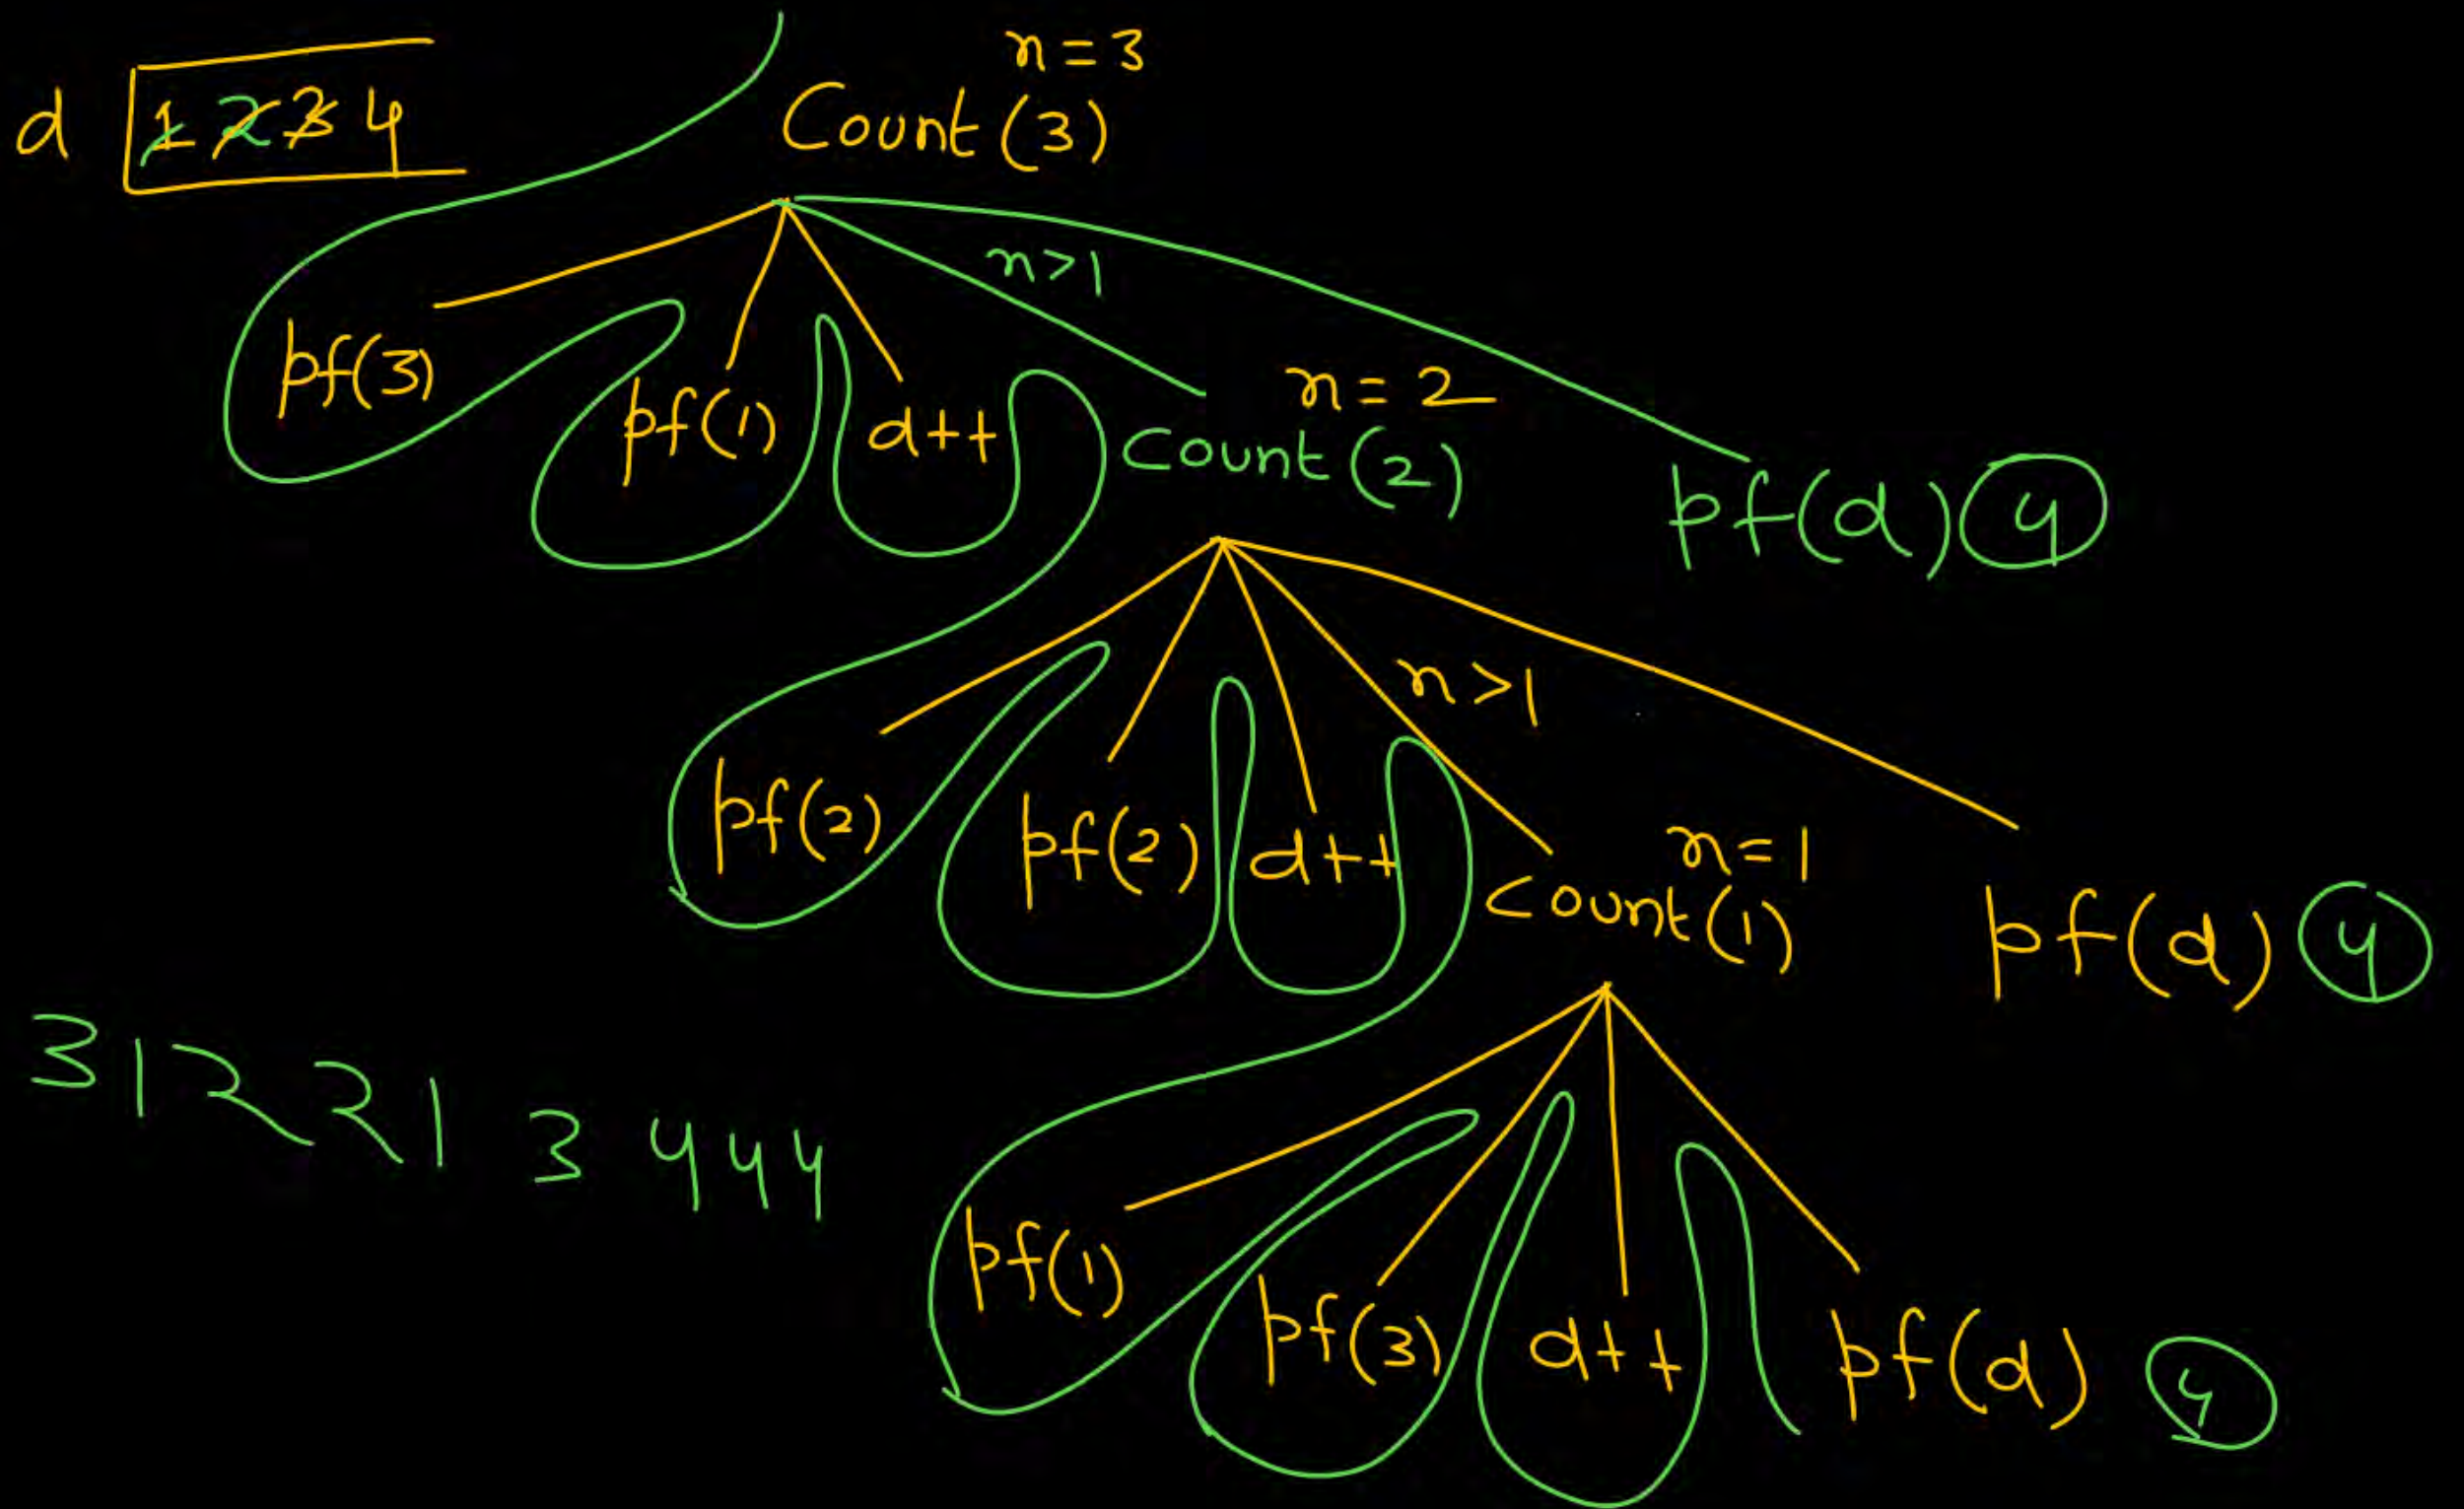 n = 3
d 1 2 3 4
Count (3)
n>1
pf(3)
pf(1)
d++
n = 2
Count (2)
pf(d) 4
n>1
pf(2)
pf(2)
d++
n=1
Count(1)
pf(d) 4
3 1 2 2 1 3 4 4 4
pf(1)
pf(3)
d++
pf(d) 4